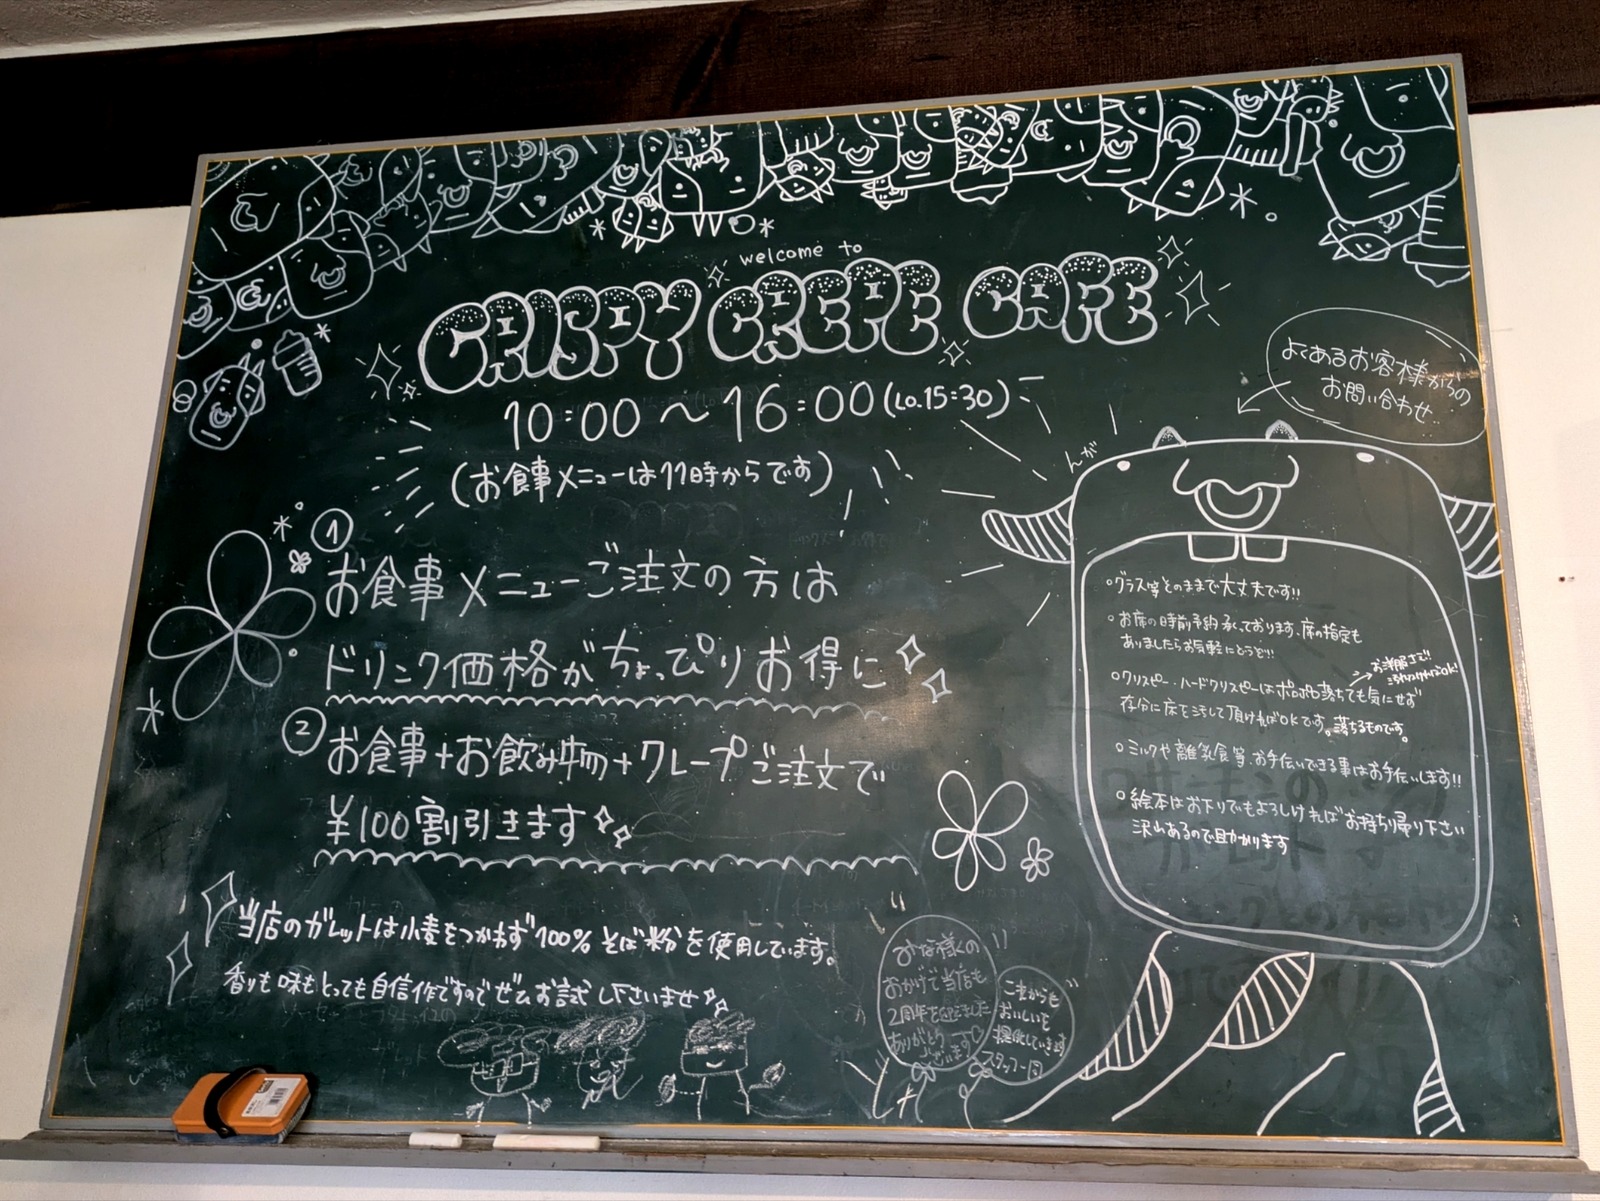 welcome to
CRISPY CREPE CAFE
10:00 〜 16:00 (Lo.15:30)
(お食事メニューは11時からです)
①
お食事メニューご注文の方は
ドリンク価格がちょっぴりお得に
②
お食事+お飲み物+クレープご注文で
¥100割引きます
当店のガレットは小麦をつかわず100%そば粉を使用しています。
香りも味もとっても自信作ですのでぜひお試し下さいませ
よくあるお客様からの
お問い合わせ
んが
グラス等そのままで大丈夫です!!
お席の時前予約承っております、席の指定も
ありましたらお気軽にどうぞ!!
お洋服まで!!
クリスピー・ハードクリスピーはポロポロ落ちても気にせず
存分に床を汚して頂ければOKです。落ちるものです。
ミルクや離乳食等、お手伝いできる事はお手伝いします!!
絵本はお下りでもよろしければお持ち帰り下さい
沢山あるので助かります
みな様くの
おかげで当店も
2周年を迎えました
ありがとう
ございます♡
これからも
おいしいを
提供していきます
スタッフ一同